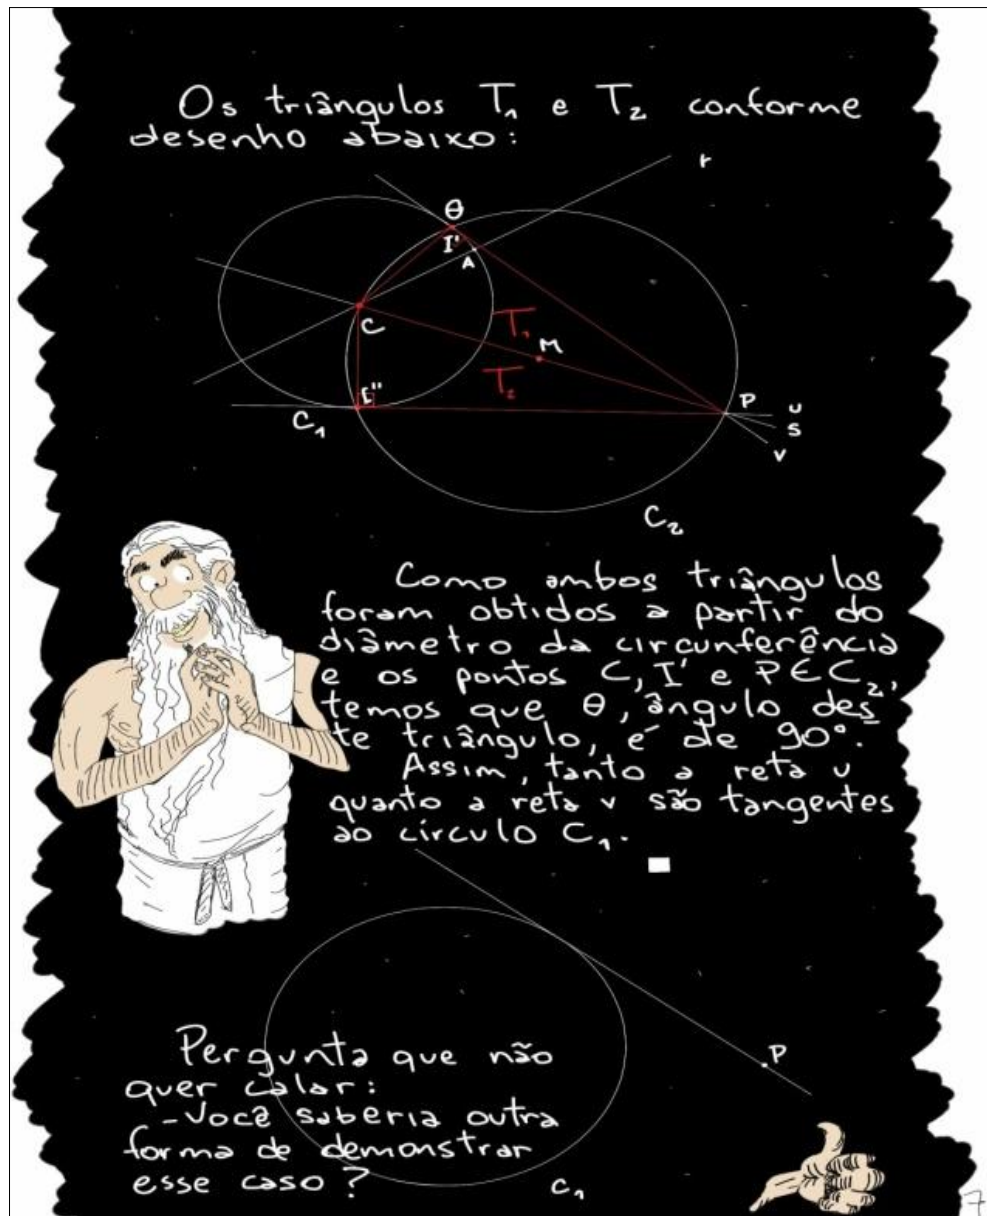 Os triângulos T₁ e T₂ conforme
desenho abaixo:
r
θ
I'
A
C
T₁
M
T₂
I"
P
u
s
v
C₁
C₂
Como ambos triângulos
foram obtidos a partir do
diâmetro da circunferência
e os pontos C, I' e P ∈ C₂,
temos que θ, ângulo des
te triângulo, é de 90°.
Assim, tanto a reta u
quanto a reta v são tangentes
ao círculo C₁.
P
Pergunta que não
quer calar:
- Você saberia outra
forma de demonstrar
esse caso?
C₁
7